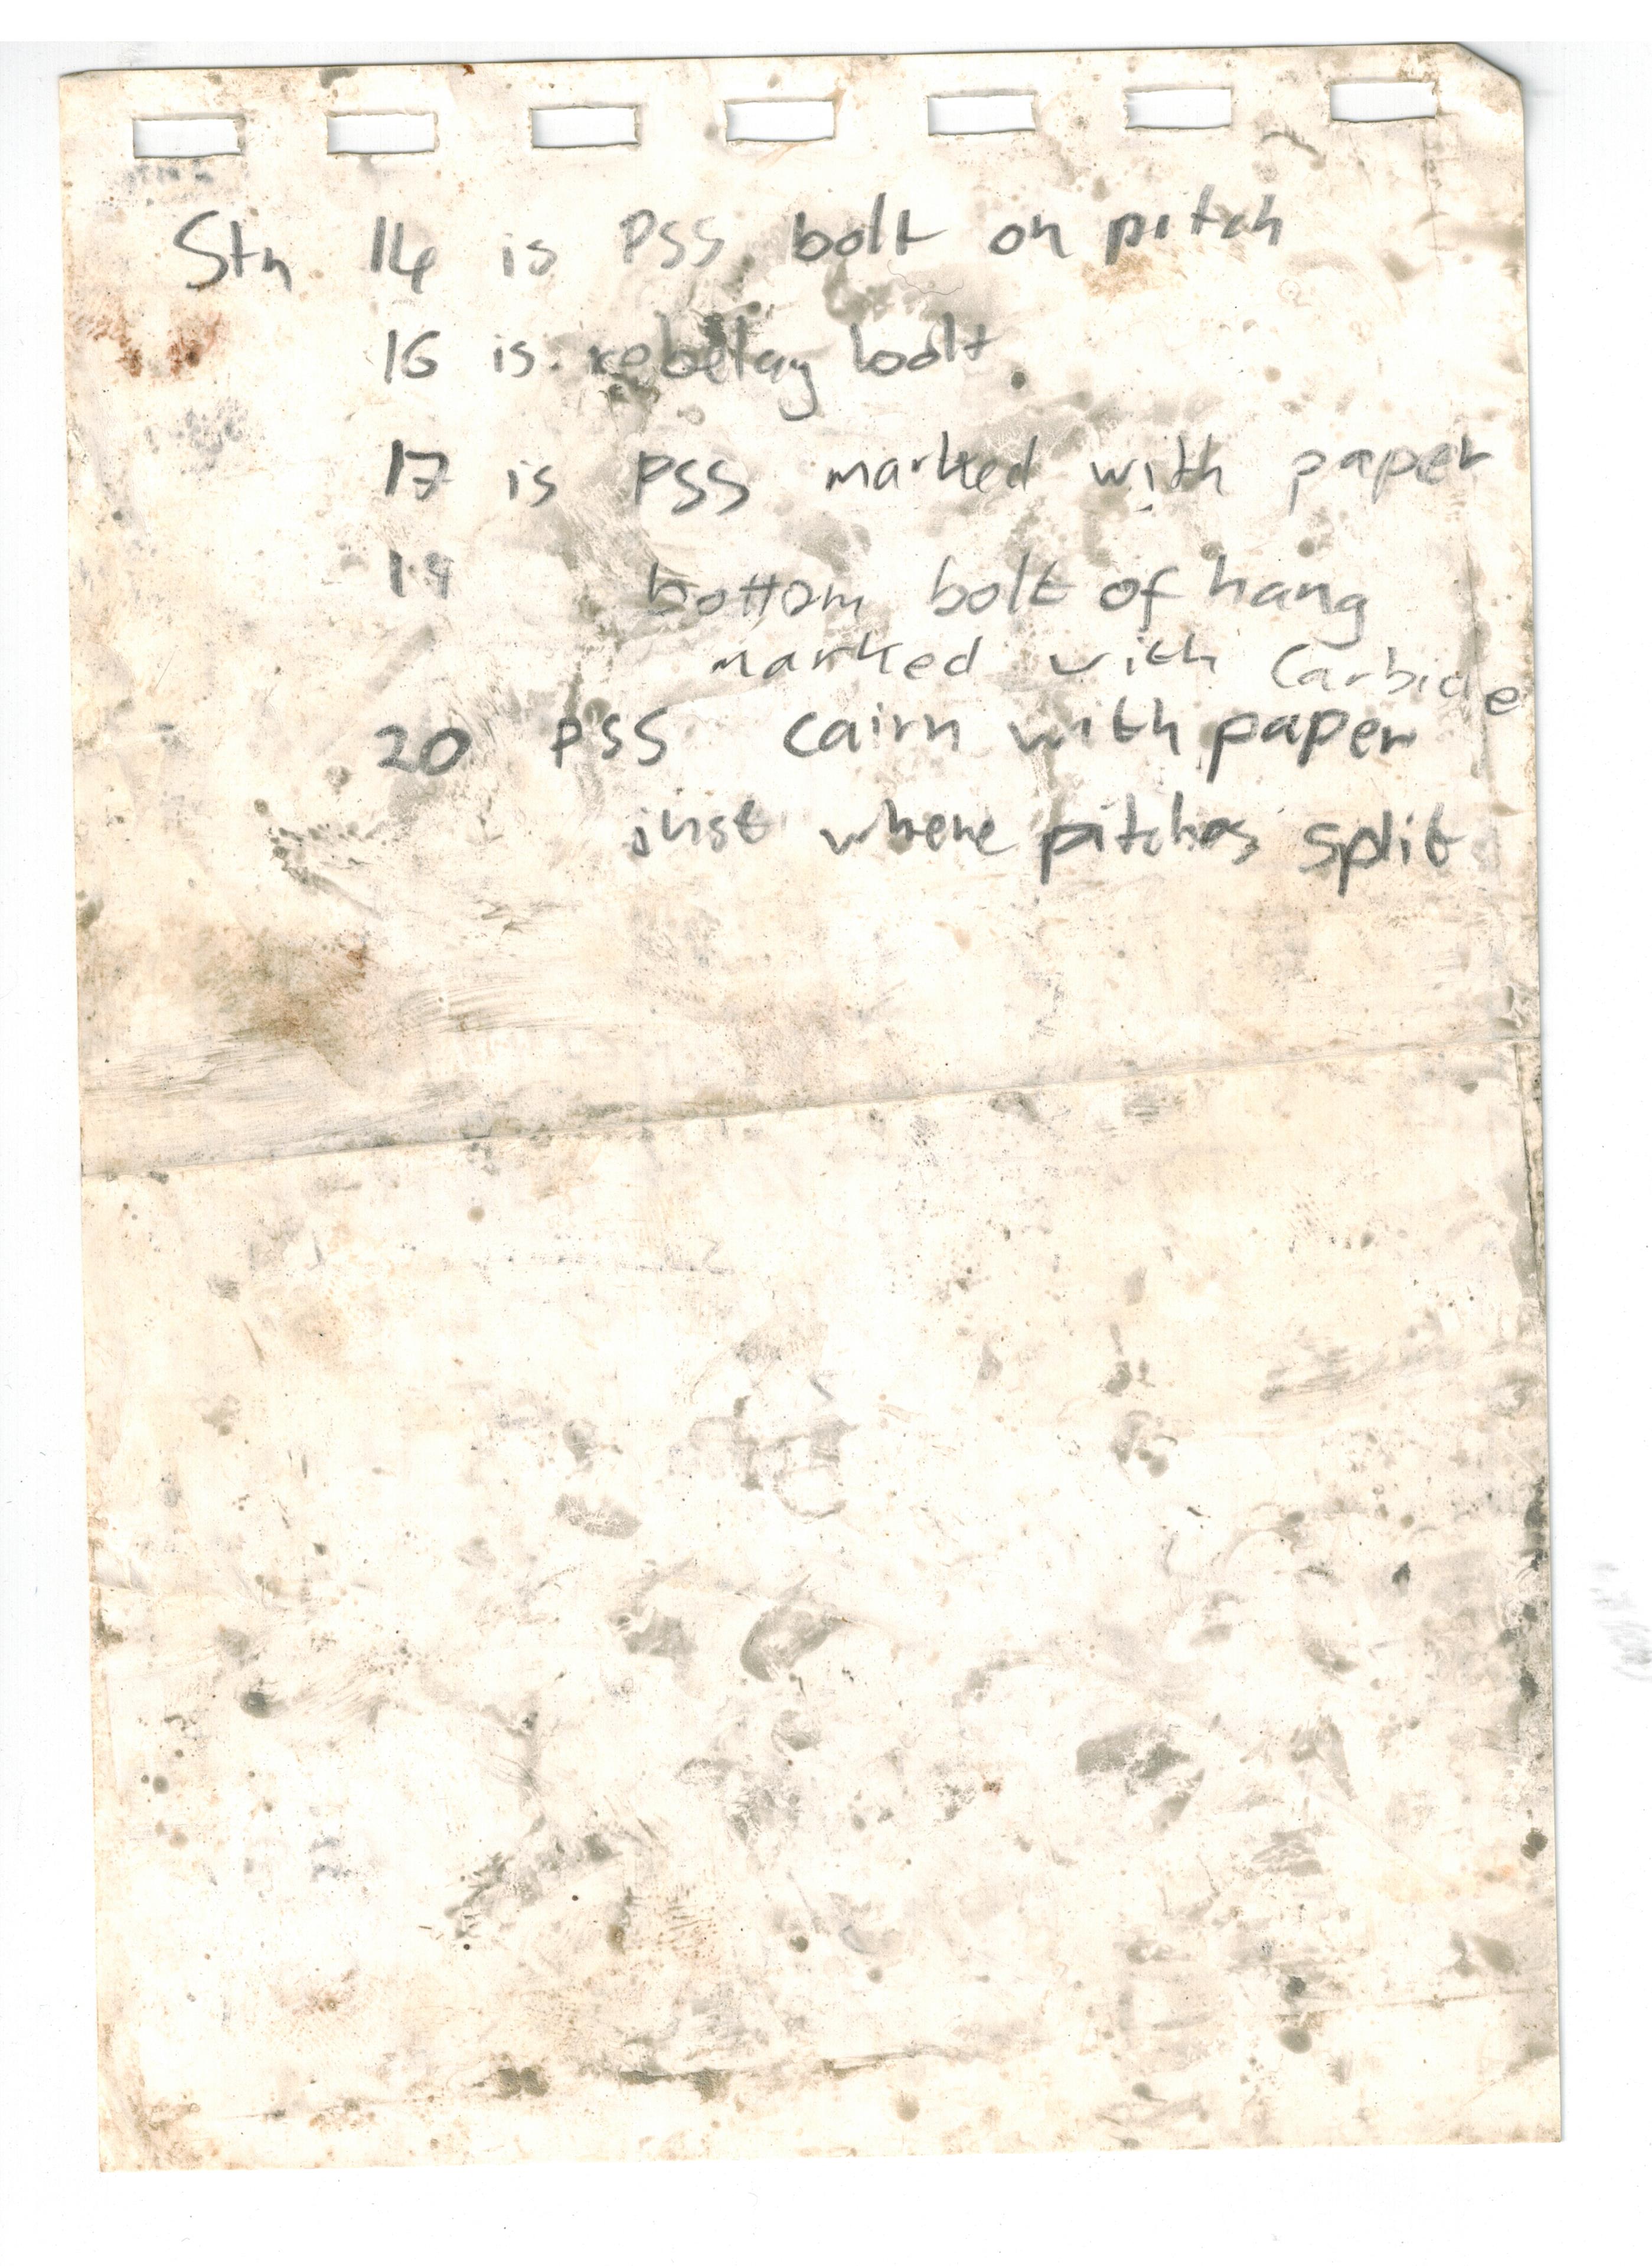 Stn 14 is PSS bolt on pitch
16 is rebelay bolt
17 is PSS marked with paper
19 bottom bolt of hang
marked with Carbide
20 PSS cairn with paper
just where pitches split